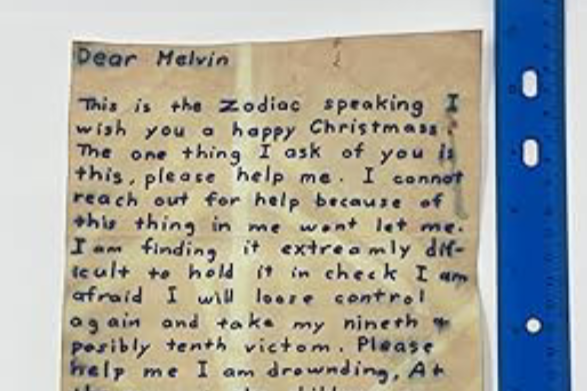 Dear Melvin
This is the Zodiac speaking I
wish you a happy Christmass.
The one thing I ask of you is
this, please help me. I cannot
reach out for help because of
this thing in me wont let me.
I am finding it extreamly dif-
icult to hold it in check I am
afraid I will loose control
again and take my nineth &
posibly tenth victom. Please
help me I am drownding. At